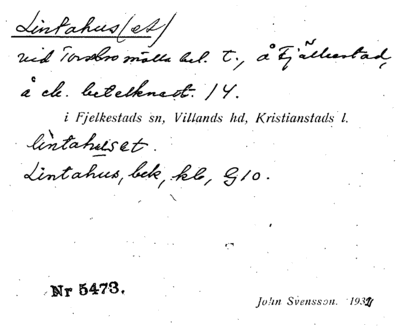 Lintahus(et)
vid Torsbro mölla bel. t., å Fjälkestad,
å ek. beteckn. 14.
i Fjelkestads sn, Villands hd, Kristianstads l.
lintahuset.
Lintahus, bek, kb, G10.
Nr 5473.
John Svensson. 1931